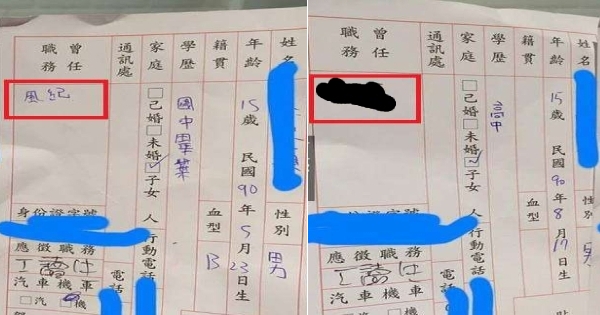 姓名
年齡 15歲 民國90年5月23日生
性別 男
籍貫
血型 B
學歷 國中畢業
家庭 □已婚□未婚□子女 人
通訊處
行動電話
電話
曾任職務
風紀
身份證字號
應徵職務
工讀
汽車機車
□汽□機
姓名
年齡 15歲 民國90年8月17日生
性別 男
籍貫
血型
學歷 高中
家庭 □已婚□未婚□子女 人
通訊處
行動電話
電話
曾任職務
身份證字號
應徵職務
工讀
汽車機車
□汽□機